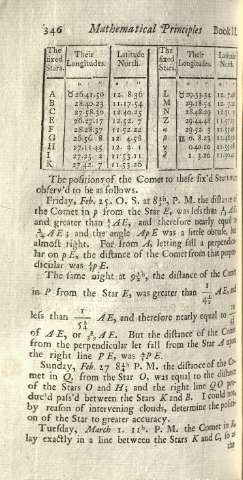 346 Mathematical Principles Book II
The fixed Stars. Their Longitudes. Latitude North. The fixed Stars. Their Longitudes. Latitude North.
A ♉ 26.41.50 12. 8.36 L ♉ 29.33.34
B 28.40.23 11.17.54 M 29.18.54
C 27.58.30 12.40.25 N 28.48.29
E 26.27.17 12.52. 7 Z 29.44.48
F 28.28.37 11.52.22
G 26.56. 8 4.58
H 27.11.45 12. 2. 1
I 27.25. 2 11.53.11
K 27.42. 7 11.53.26
The positions of the Comet to these fix'd Stars were
observ'd to be as follows.
Friday, Feb. 25. O. S. at 8½h. P. M. the distance of
the Comet in p from the Star E, was less than AE,
and greater than AE, and therefore nearly equal to
AE; and the angle ApE was a little obtuse, but
almost right. For from A, letting fall a perpendicu-
lar on pE, the distance of the Comet from that perpen-
dicular was pE.
The same night at 9½h, the distance of the Comet
in P from the Star E, was greater than AE, and
less than AE, and therefore nearly equal to
of AE, or AE. But the distance of the Comet
from the perpendicular let fall from the Star A upon
the right line PE, was PE.
Sunday, Feb. 27 8¼h P. M. the distance of the Co-
met in Q, from the Star O, was equal to the distance
of the Stars O and H; and the right line QO pro-
duc'd pass'd between the Stars K and B. I could not,
by reason of intervening clouds, determine the position
of the Star to greater accuracy.
Tuesday, March 1. 11h. P. M. the Comet in R,
lay exactly in a line between the Stars K and C, so as
the